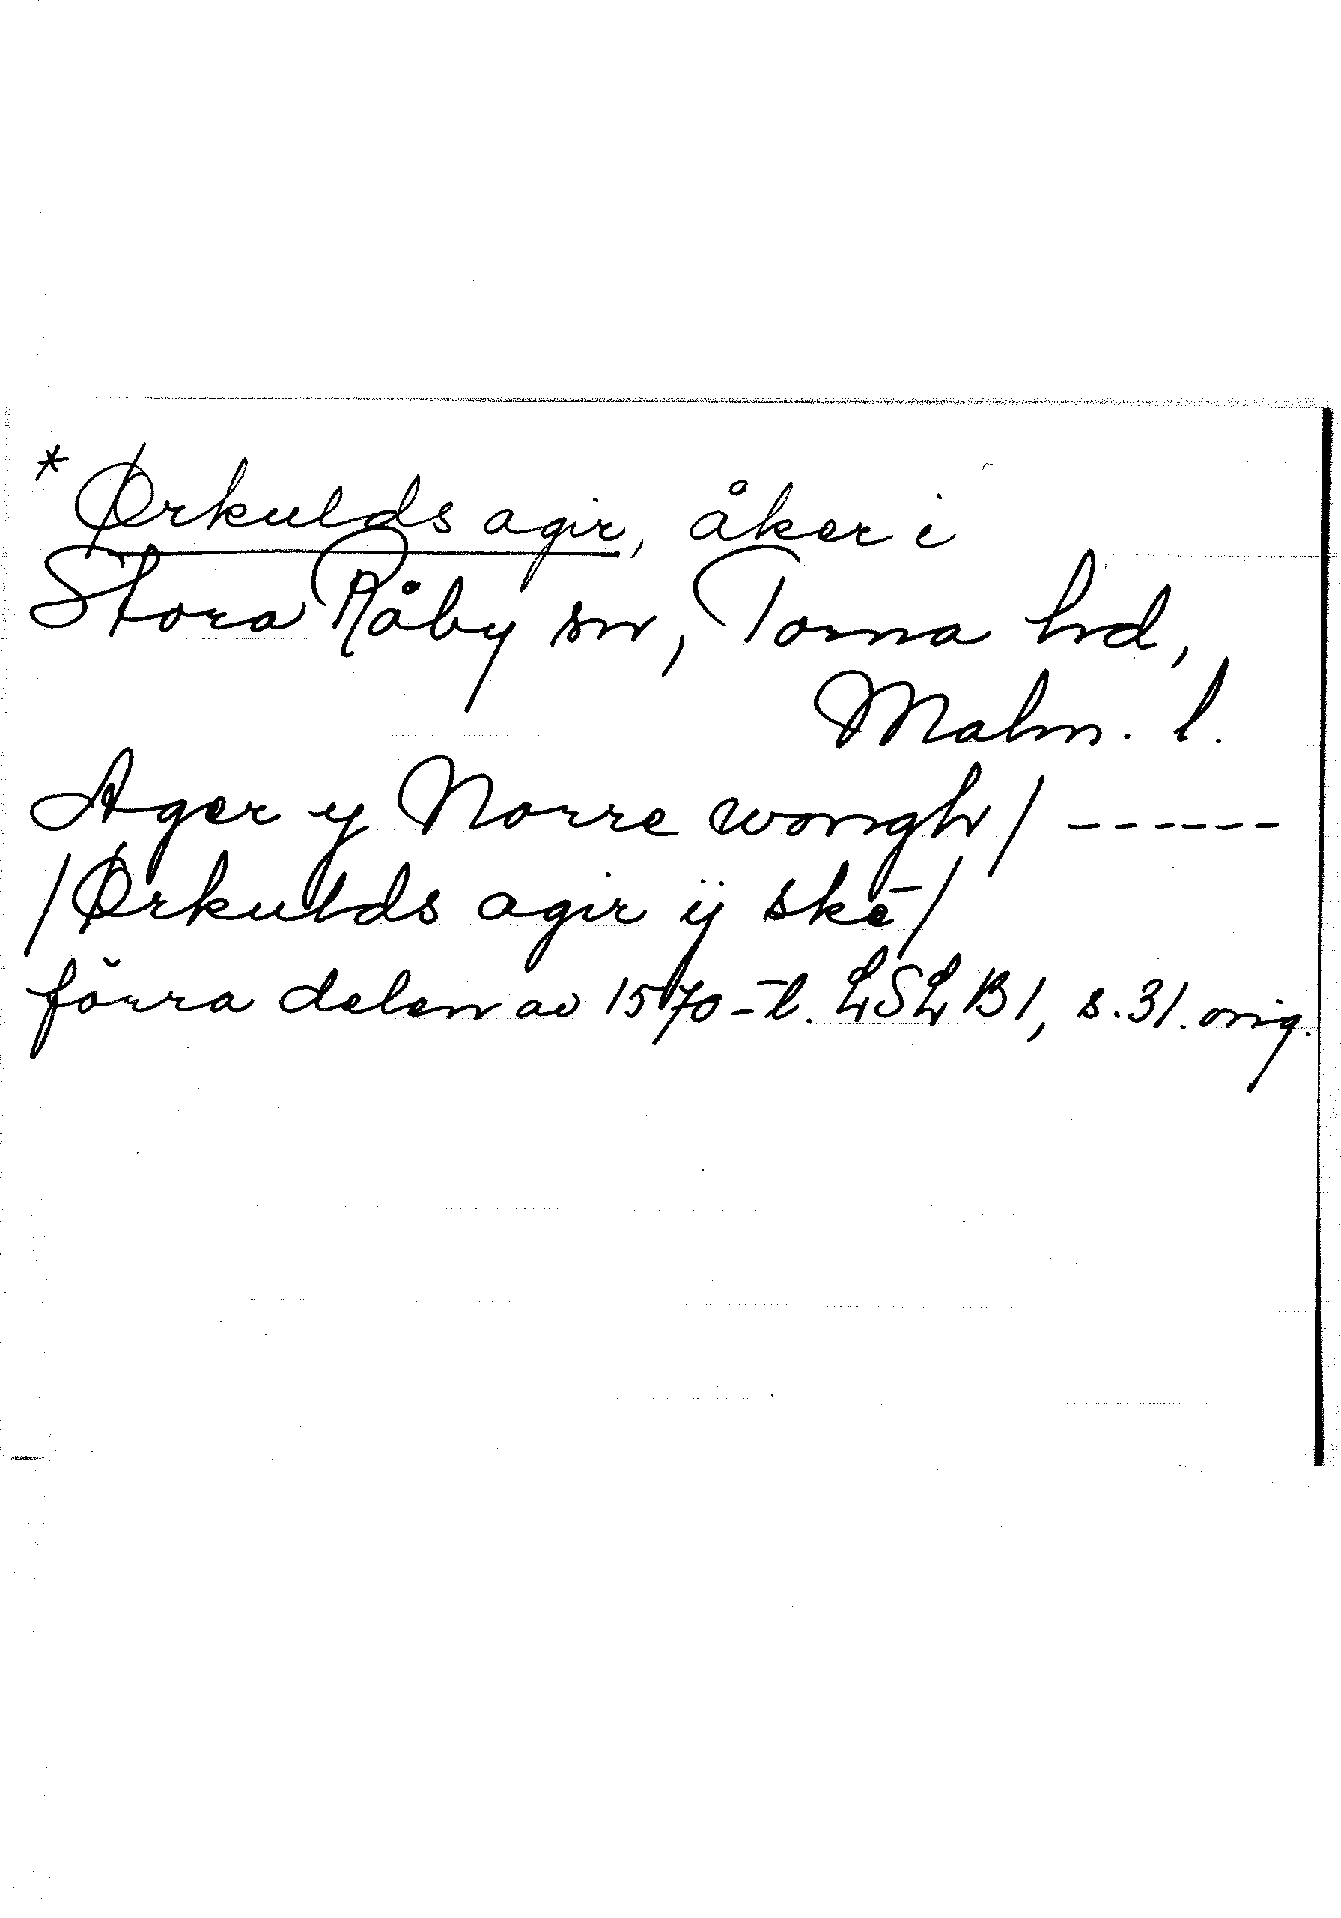 * Ørkulds agir, åker i
Stora Råby sn, Torna hd,
Malm. l.
Ager y Norre wongh/ ------
/Ørkulds agir ÿ skē/
förra delen av 1570-t. LSLB1, s. 31. orig.